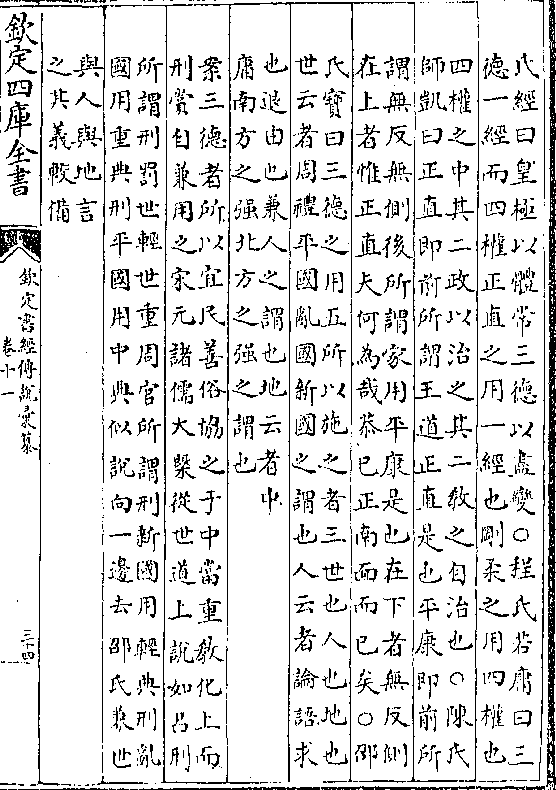 氏經曰皇極以體常三德以盡變○程氏若庸曰三
德一經而四權正直之用一經也剛柔之用四權也
四權之中其二政以治之其二教之自治也○陳氏
師凱曰正直即前所謂王道正直是也平康即前所
謂無反無側後所謂家用平康是也在下者無反側
在上者惟正直夫何為哉恭己正南面而已矣○邵
氏寶曰三德之用五所以施之者三世也人也地也
世云者周禮平國亂國新國之謂也人云者論語求
也退由也兼人之謂也地云者中
庸南方之强北方之强之謂也
案三德者所以宜民善俗協之于中當重教化上而
刑賞自兼用之宋元諸儒大槩從世道上說如呂刑
所謂刑罰世輕世重周官所謂刑新國用輕典刑亂
國用重典刑平國用中典似說向一邊去邵氏兼世
與人與地言
之其義較備
欽定四庫全書
欽定書經傳說彙纂
卷十一
三十四